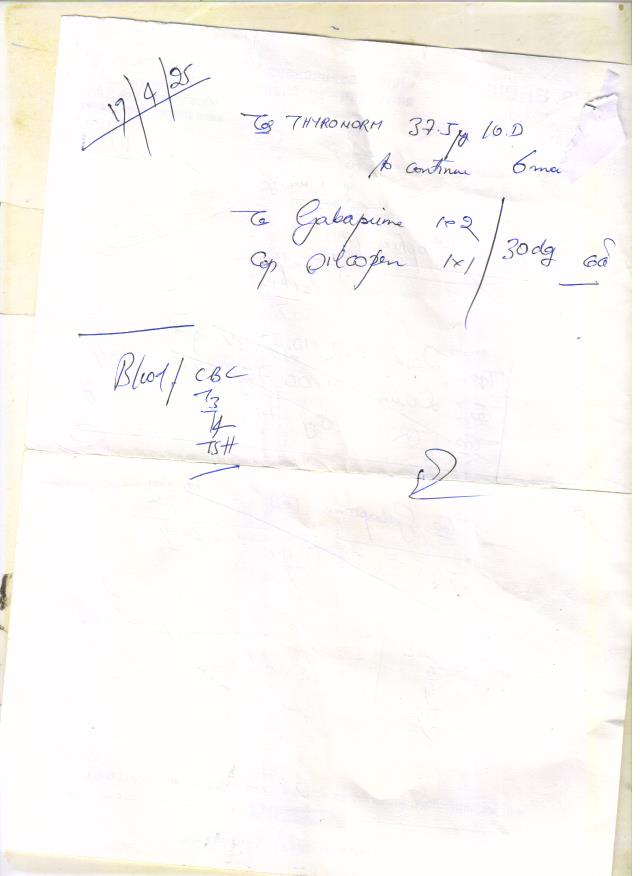 19/4/25
Tab THYRONORM 37.5µg 1O.D
to continue 6mo
Tab Gabaprime 1x2
Cap 1x1 / 30dg
Blood/ CBC
T3
T4
TSH